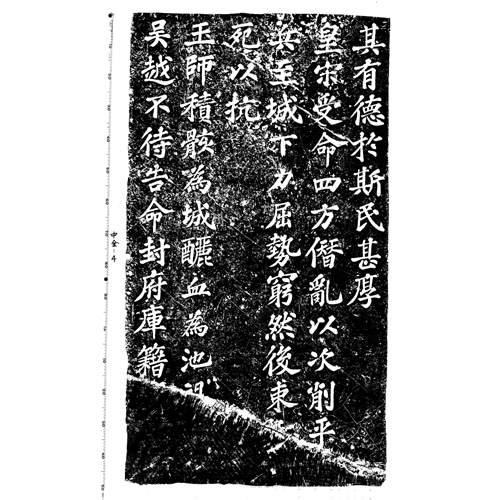 其有德於斯民甚厚
皇宋受命四方僭亂以次削平
兵至城下力屈勢窮然後束
死以抗
王師積骸為城釃血為池
吳越不待告命封府庫籍